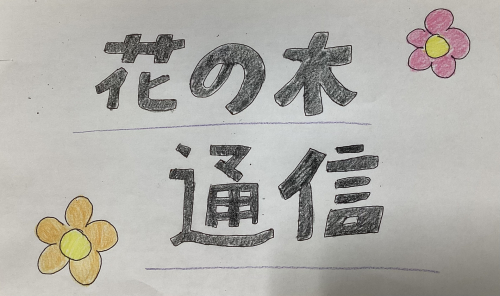 花の木
通信